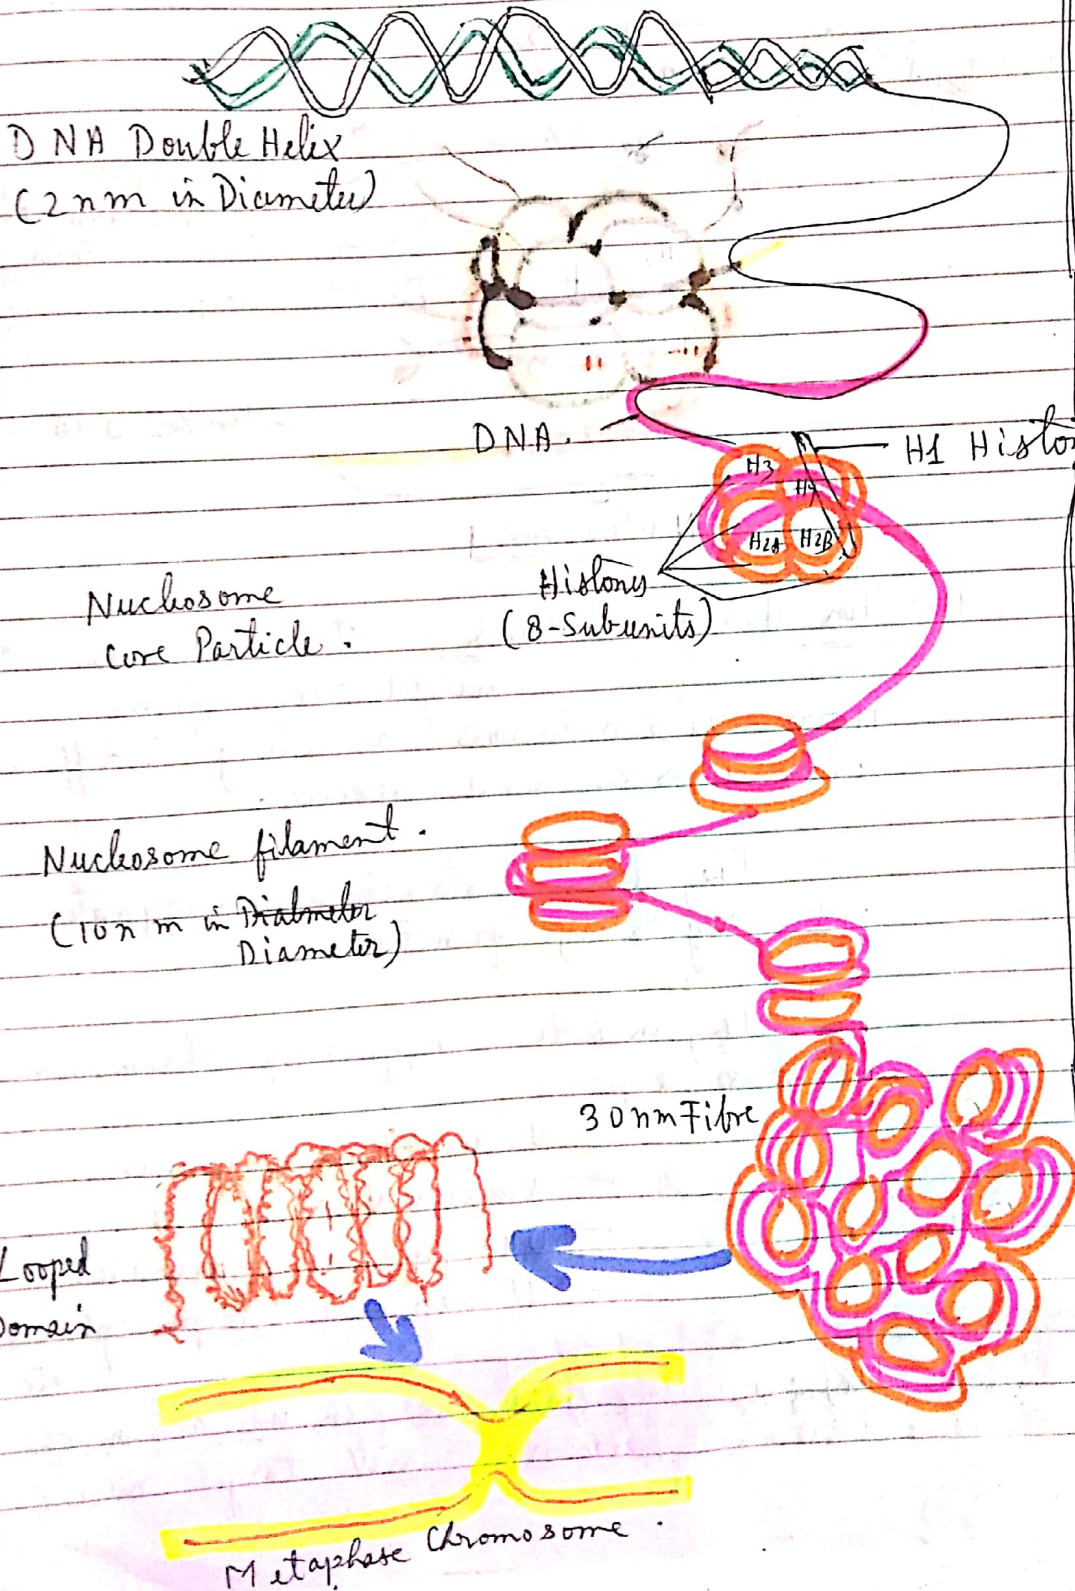 DNA Double Helix
(2 nm in Diameter)
DNA.
H1 Histo
H3
H4
H2A H2B
Histones
(8-Subunits)
Nucleosome
Core Particle.
Nucleosome filament.
(10 n m in Dialmeter
Diameter)
30nm Fibre
Looped
Domain
Metaphase Chromosome.